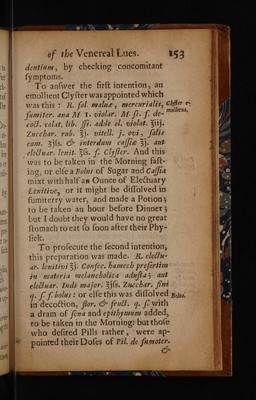 of the Venereal Lues. 153
dentium, by checking concomitant
symptoms.
To answer the first intention, an
emollient Clyster was appointed which
was this : ℞. fol. malvæ, mercurialis,
Clyster e-
molliens.
fumiter. ana M 1. violar. M. ß. f. de-
coct. colat. lib. ſſi. adde ol. violat. ℥iij.
Zucchar. rub. ℥j. vitell. j. ovi, salis
com. ʒſs. & interdum cassiæ ℥j. aut
electuar. lenit. ℥ſs. f. Clyster. And this
was to be taken in the Morning fast-
ing, or else a Bolus of Sugar and Cassia
mixt with half an Ounce of Electuary
Lenitive, or it might be dissolved in
fumiterry water, and made a Potion;
to be taken an hour before Dinner;
but I doubt they would have no great
stomach to eat so soon after their Phy-
sick.
To prosecute the second intention,
this preparation was made. ℞. electu-
ar. lenitivi ℥j. Confec. hamech præsertim
in materia melancholica adusta ʒj. aut
electuar. Indi major. ʒſs. Zucchar. fini
q. s. f. bolus : or else this was dissolved
Bolus.
in decoction, flor. & fruct. q. s. with
a dram of sena and epithymum added,
to be taken in the Morning: but those
who desired Pills rather, were ap-
pointed their Doses of Pil. de fumoter.
&